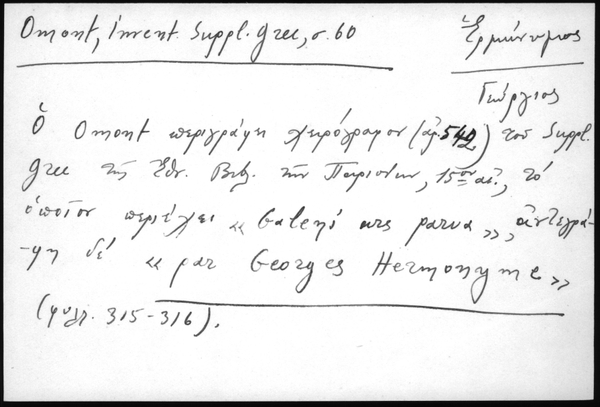 Omont, Invent. Suppl. Grec, σ. 60
Ἑρμώνυμος
Γεώργιος
Ὁ Omont περιγράφει χειρόγραφον (ἀρ. 542) τοῦ Suppl.
Grec τῆς Ἐθν. Βιβ. τῶν Παρισίων, 15ου αἰ., τὸ
ὁποῖον περιέχει « Galeni ars parva », ἀντεγρά-
-φη δέ « par Georges Hermonyme »
(φυλλ. 315-316).